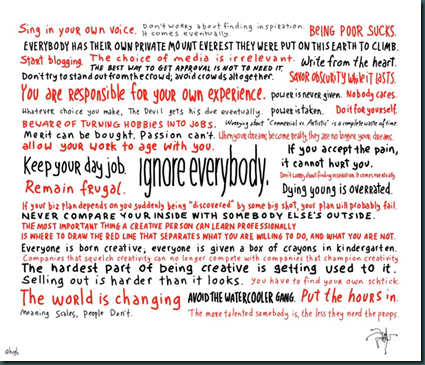 Sing in your own voice. Don't worry about finding inspiration. It comes eventually. BEING POOR SUCKS.
EVERYBODY HAS THEIR OWN PRIVATE MOUNT EVEREST THEY WERE PUT ON THIS EARTH TO CLIMB.
Start blogging. The choice of media is irrelevant. Write from the heart.
THE BEST WAY TO GET APPROVAL IS NOT TO NEED IT.
Don't try to stand out from the crowd; avoid crowds altogether. SAVOR OBSCURITY WHILE IT LASTS.
You are responsible for your own experience. power is never given. Nobody cares.
Whatever choice you make, The Devil gets his due eventually. power is taken. Do it for yourself.
BEWARE OF TURNING HOBBIES INTO JOBS. Worrying about "Commercial vs. Artistic" is a complete waste of time.
Merit can be bought. Passion can't. When your dreams become reality, they are no longer your dreams.
allow your work to age with you. If you accept the pain,
Keep your day job. ignore everybody. it cannot hurt you.
Don't worry about finding inspiration. It comes eventually.
Remain frugal. Dying young is overrated.
If your biz plan depends on you suddenly being "discovered" by some big shot, your plan will probably fail.
NEVER COMPARE YOUR INSIDE WITH SOMEBODY ELSE'S OUTSIDE.
THE MOST IMPORTANT THING A CREATIVE PERSON CAN LEARN PROFESSIONALLY
IS WHERE TO DRAW THE RED LINE THAT SEPARATES WHAT YOU ARE WILLING TO DO, AND WHAT YOU ARE NOT.
Everyone is born creative, everyone is given a box of crayons in kindergarten.
Companies that squelch creativity can no longer compete with companies that champion creativity
The hardest part of being creative is getting used to it.
Selling out is harder than it looks. You have to find your own schtick.
The world is changing AVOID THE WATERCOOLER GANG. Put the hours in.
Meaning Scales, people Don't. The more talented somebody is, the less they need the props.
@hugh